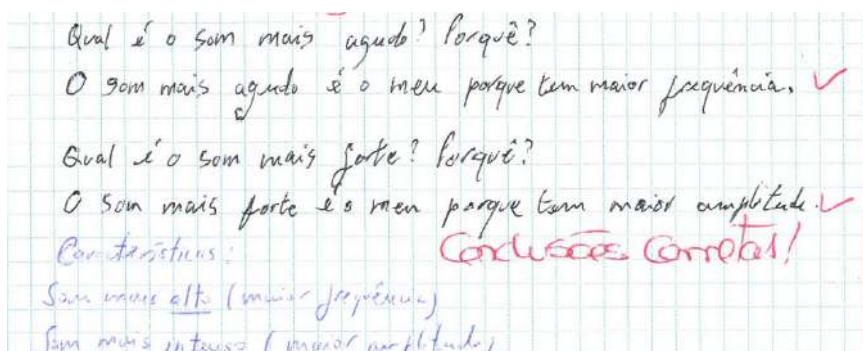 Qual é o som mais agudo? Porquê?
O som mais agudo é o meu porque tem maior frequência. ✓
Qual é o som mais forte? Porquê?
O som mais forte é o meu porque tem maior amplitude. ✓
Conclusões Corretas!
Características:
Som mais alto (maior frequência)
Som mais intenso (maior amplitude)